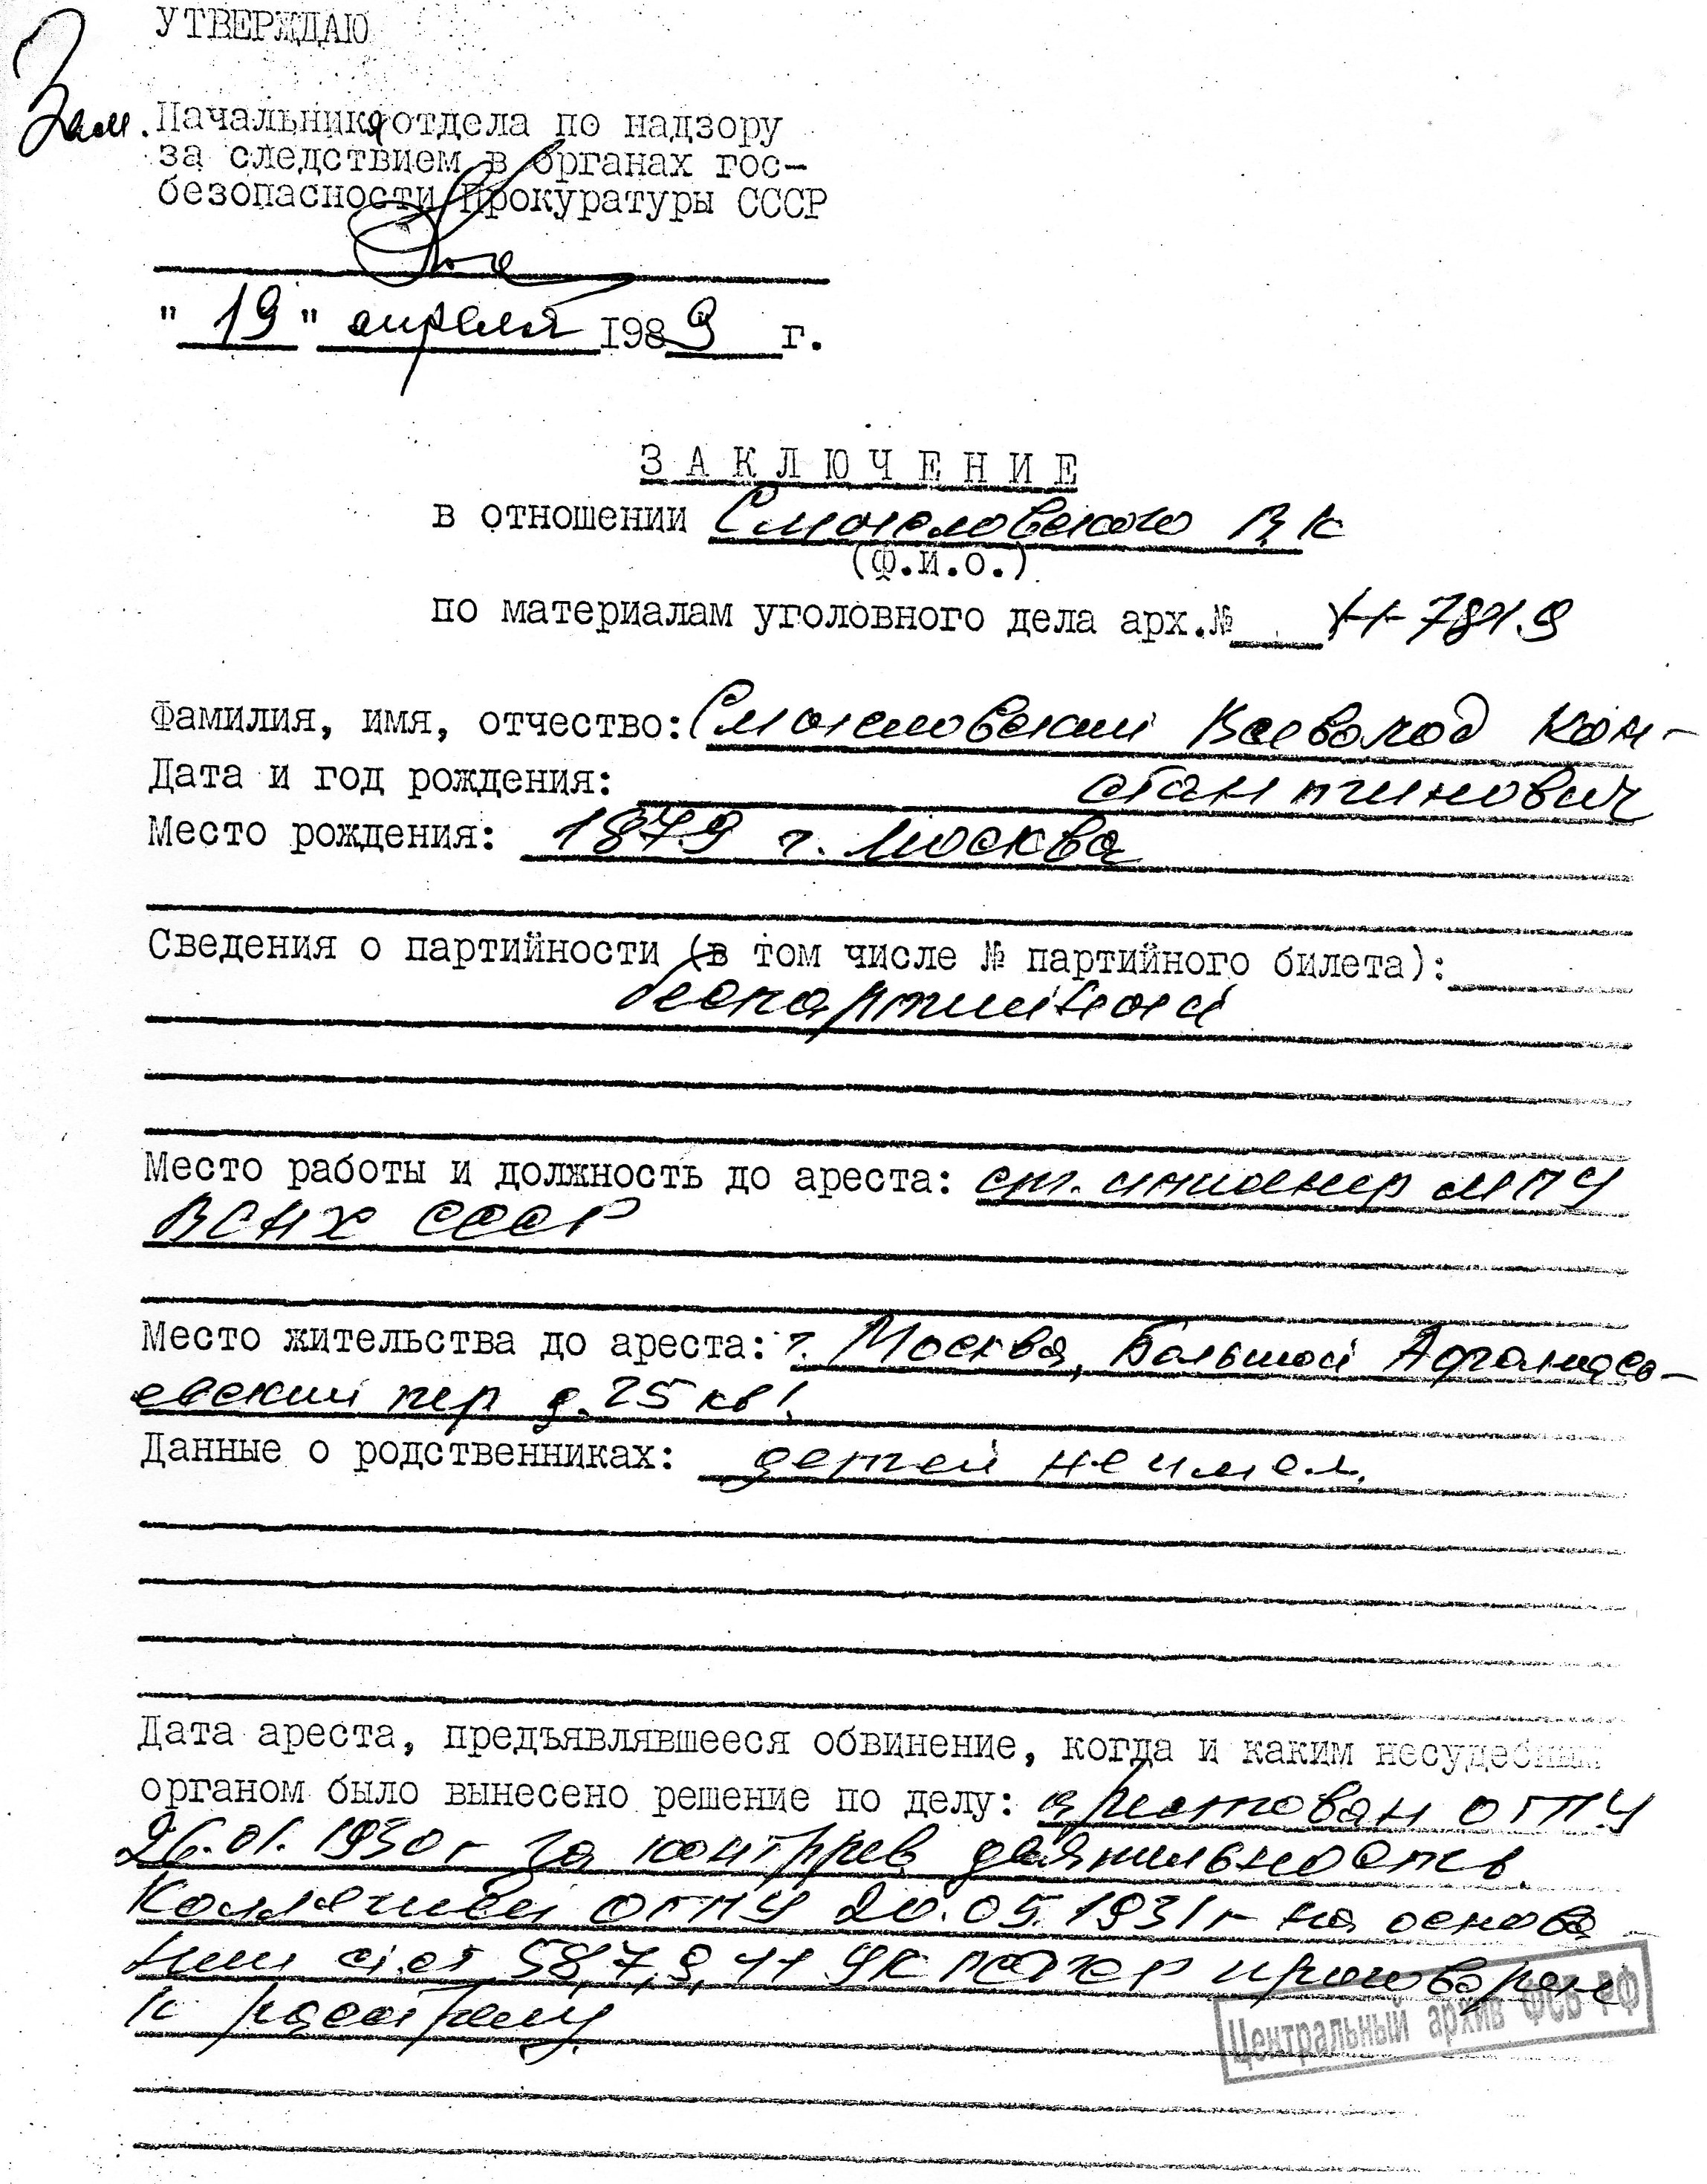 УТВЕРЖДАЮ
Зам. Начальника отдела по надзору
за следствием в органах гос-
безопасности Прокуратуры СССР
" 19 " апреля 1989 г.
ЗАКЛЮЧЕНИЕ
в отношении Смысловского В К
(Ф.И.О.)
по материалам уголовного дела арх.№ Н-7819
Фамилия, имя, отчество: Смысловский Всеволод Кон-
стантинович
Дата и год рождения:
Место рождения: 1879 г. Москва
Сведения о партийности (в том числе № партийного билета):
беспартийный
Место работы и должность до ареста: ст. инженер МПУ
ВСНХ СССР
Место жительства до ареста: г. Москва, Большой Афанась-
евский пер д. 25 кв 1.
Данные о родственниках: детей не имел.
Дата ареста, предъявлявшееся обвинение, когда и каким несудебным
органом было вынесено решение по делу: арестован ОГПУ
26.01.1930 г за контррев деятельность.
Коллегией ОГПУ 20.05.1931 г на основа
нии ст.ст 58/7, 9, 11 УК РСФСР приговорен
к расстрелу.
Центральный архив ФСБ РФ